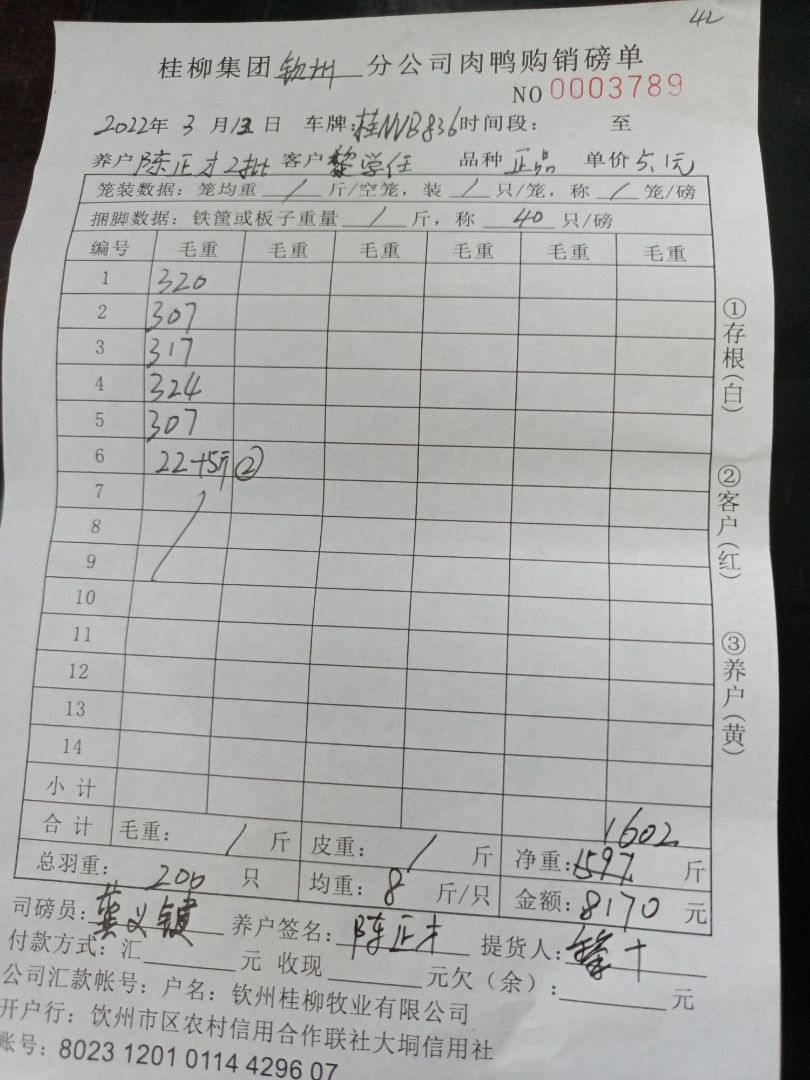 42
桂柳集团 钦州 分公司肉鸭购销磅单
NO 0003789
2022年 3 月 13 日 车牌:桂NVB836 时间段: 至
养户 陈正才2批 客户 黎学任 品种 正品 单价 5.1元
笼装数据:笼均重 / 斤/空笼,装 / 只/笼,称 / 笼/磅
捆脚数据:铁筐或板子重量 / 斤,称 40 只/磅
编号 毛重 毛重 毛重 毛重 毛重 毛重
1 320
2 307
3 317
4 324
5 307
6 22+5斤②
7
8
9
10
11
12
13
14
小计
1602
合计 毛重: / 斤 皮重: / 斤 净重:1597 斤
总羽重: 200 只 均重: 8 斤/只 金额:8170 元
司磅员: 龚义键 养户签名: 陈正才 提货人:
付款方式:汇 元 收现 元欠(余): 元
公司汇款帐号:户名:钦州桂柳牧业有限公司
开户行:钦州市区农村信用合作联社大垌信用社
账号:8023 1201 0114 4296 07
①存根(白)
②客户(红)
③养户(黄)